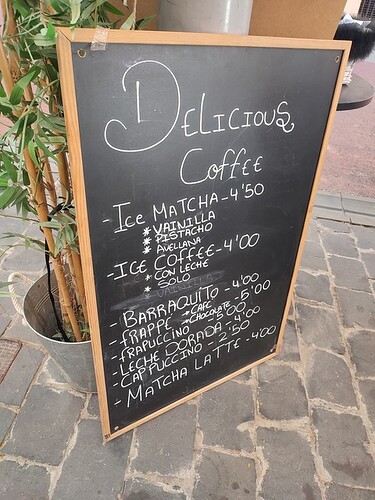 DELICIOUS
COFFEE
- ICE MATCHA - 4'50
* VAINILLA
* PISTACHO
* AVELLANA
- ICE COFFEE - 4'00
* CON LECHE
* SOLO
- BARRAQUITO - 4'00
- FRAPPE * CAFE * CHOCOLATE - 5'00
- FRAPUCCINO - 5'00
- LECHE DORADA - 4'00
- CAPPUCCINO - 2'50
- MATCHA LATTE - 4'00